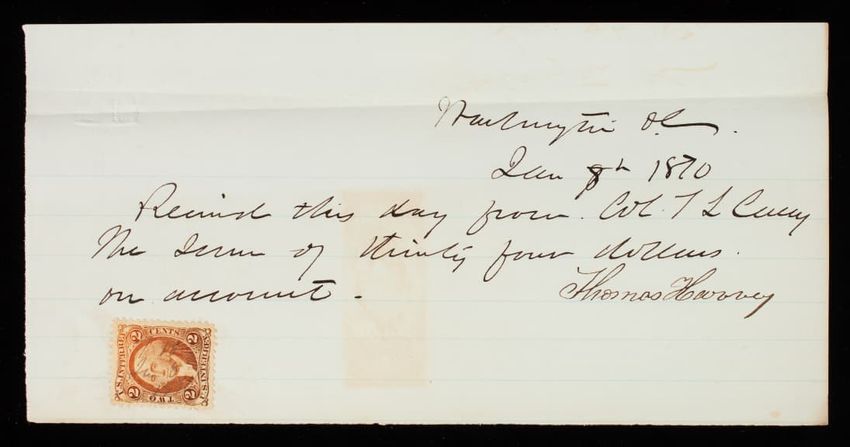 Washington D.C.
Jan 8th 1870
Received this day from Col. T L Casey
the sum of thirty four dollars
on account.
Thomas Harvey
U.S. INTER. REV.
2 CENTS 2
2 TWO 2